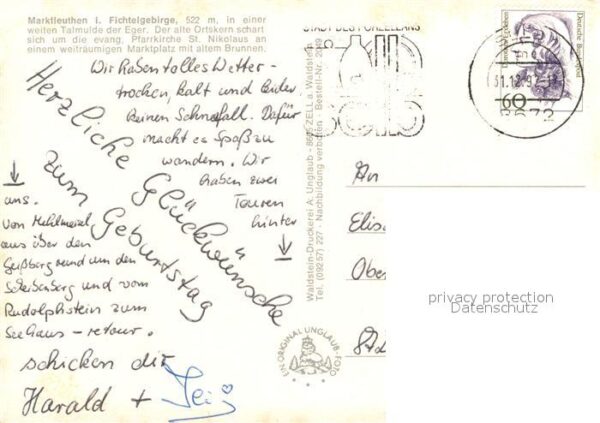 Marktleuthen i. Fichtelgebirge, 522 m, in einer
weiten Talmulde der Eger. Der alte Ortskern schart
sich um die evang. Pfarrkirche St. Nikolaus an
einem weiträumigen Marktplatz mit altem Brunnen.
Wir haben tolles Wetter -
trocken, kalt und leider
keinen Schneefall. Dafür
macht es Spaß zu
wandern. Wir
haben zwei
Touren
hinter
uns.
Von Mehlmeisel
aus über den
Geißberg rund um den
und vom
Rudolphstein zum
Seehaus - retour.
Herzliche Glückwünsche
zum Geburtstag
schicken dir
Harald +
Waldstein-Druckerei A. Unglaub - 8665 ZELL a. Waldstein
Tel. (09257) 227 - Nachbildung verboten - Bestell-Nr. 2009
EIN ORIGINAL UNGLAUB-FOTO
STADT DES PORZELLANS
31.12.9
8672
60
Deutsche Bundespost
An
Elis
Ober
privacy protection
Datenschutz